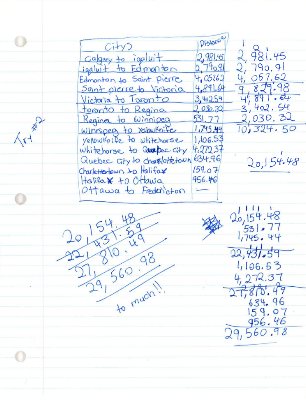 Try #2
Citys Distance
Calgary to iqaluit 2,981.45
iqaluit to Edmonton 2,790.91
Edmonton to Saint pierre 4,057.62
Saint pierre to Victoria 4,891.64
Victoria to Toronto 3,402.54
toronto to Regina 2,030.32
Regina to Winnipeg 531.77
winnipeg to yellowknife 1,745.44
yellowknife to whitehorse 1,106.53
whitehorse to Quebec city 4,272.37
Quebec city to charlottetown 634.96
Charlottetown to Halifax 159.07
Halifax to Ottawa 956.46
Ottawa to Fredericton —
2,981.45
2,790.91
4,057.62
9,829.98
4,891.64
3,402.54
2,030.32
10,324.50
20,154.48
20,154.48
22,431.59
27,810.49
29,560.98
to much!!
20,154.48
531.77
1,745.44
22,431.59
1,106.53
4,272.37
27,810.49
634.96
159.07
956.46
29,560.98